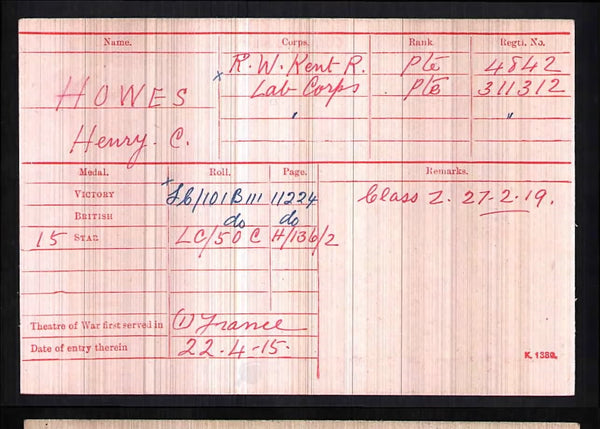 Name. Corps. Rank. Regtl. No.
HOWES x R. W. Kent R. Pte 4842
Lab Corps Pte 311312
Henry. C. " "
Medal. Roll. Page. Remarks.
VICTORY x /101B111 11224 Class Z. 27.2.19.
BRITISH do do
15 STAR LC/50C H/136/2
Theatre of War first served in (1) France
Date of entry therein 22.4-15.
K. 1380.